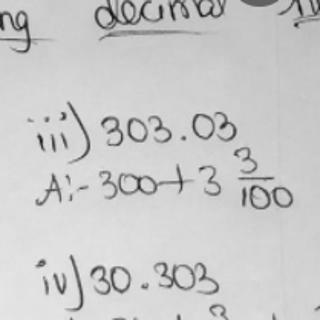 ng decimal
iii) 303.03
A:- 300+3 3/100
iv) 30.303